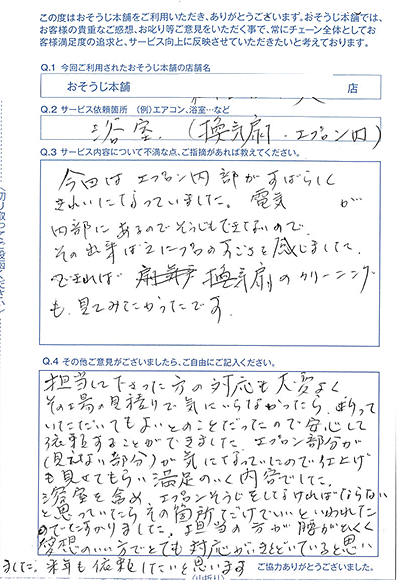 この度はおそうじ本舗をご利用いただき、ありがとうございます。おそうじ本舗では、
お客様の貴重なご感想、お叱り等ご意見をいただく事で、常にチェーン全体としてお
客様満足度の追求と、サービス向上に反映させていただきたいと考えております。
Q.1 今回ご利用されたおそうじ本舗の店舗名
おそうじ本舗 店
Q.2 サービス依頼箇所 (例)エアコン、浴室…など
浴室 (換気扇・エプロン内)
Q.3 サービス内容について不満な点、ご指摘があれば教えてください。
今回は エプロン内部がすばらしく
きれいになっていました。電気 が
内部にあるのでそうじもできないので、
その出来ばえにプロのすごさを感じました。
できれば 換気扇のクリーニング
も見てみたかったです。
Q.4 その他ご意見がございましたら、ご自由にご記入ください。
担当して下さった方の対応も大変よく
その場の見積りで気にいらなかったら、断って
いただいてもよいとのことだったので安心して
依頼することができました。エプロン部分が
(見えない部分)が気になっていたので仕上げ
も見せてもらい満足のいく内容でした。
浴室を含め、エプロンそうじをしなければならない
と思っていたらその箇所だけでいいといわれた
のでたすかりました。担当の方が腰がひくく
感想のいい方でとても対応がいきとどいていると思い
ました。来年も依頼したいと思います
ご協力ありがとうございました。
(山折り)
(切り取ってください)